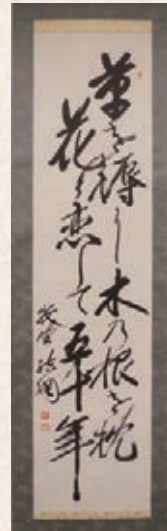 草を褥に木乃根を枕
花と恋して五十年
結網